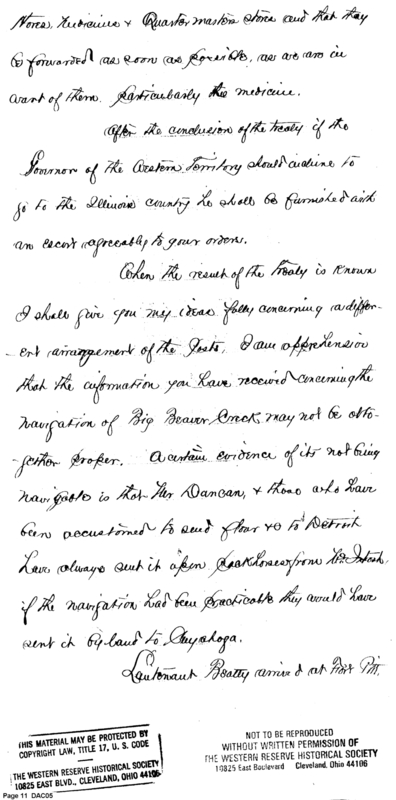 Stores, Medicines & Quarter masters stores and that they
be forwarded as soon as possible, as we are in
want of them particularly the medicine.
After the conclusion of the treaty if the
Governor of the Western Territory should incline to
go to the Illinois country he shall be furnished with
an escort agreeably to your orders.
When the result of the treaty is known
I shall give you my ideas fully concerning a differ-
-ent arrangement of the Posts. I am apprehension
that the information you have received concerning the
navigation of Big Beaver Creek may not be alto-
-gether proper. A certain evidence of its not being
navigable is that Mr Duncan, & those who have
been accustomed to send flour &c to Detroit
have always sent it upon packhorses from McIntosh
if the navigation had been practicable they would have
sent it by land to Cuyahoga.
Lieutenant Beatty arrived at Fort Pitt.
THIS MATERIAL MAY BE PROTECTED BY
COPYRIGHT LAW, TITLE 17, U. S. CODE
THE WESTERN RESERVE HISTORICAL SOCIETY
10825 EAST BLVD., CLEVELAND, OHIO 44106
NOT TO BE REPRODUCED
WITHOUT WRITTEN PERMISSION OF
THE WESTERN RESERVE HISTORICAL SOCIETY
10825 East Boulevard Cleveland, Ohio 44106
Page 11 DAC05